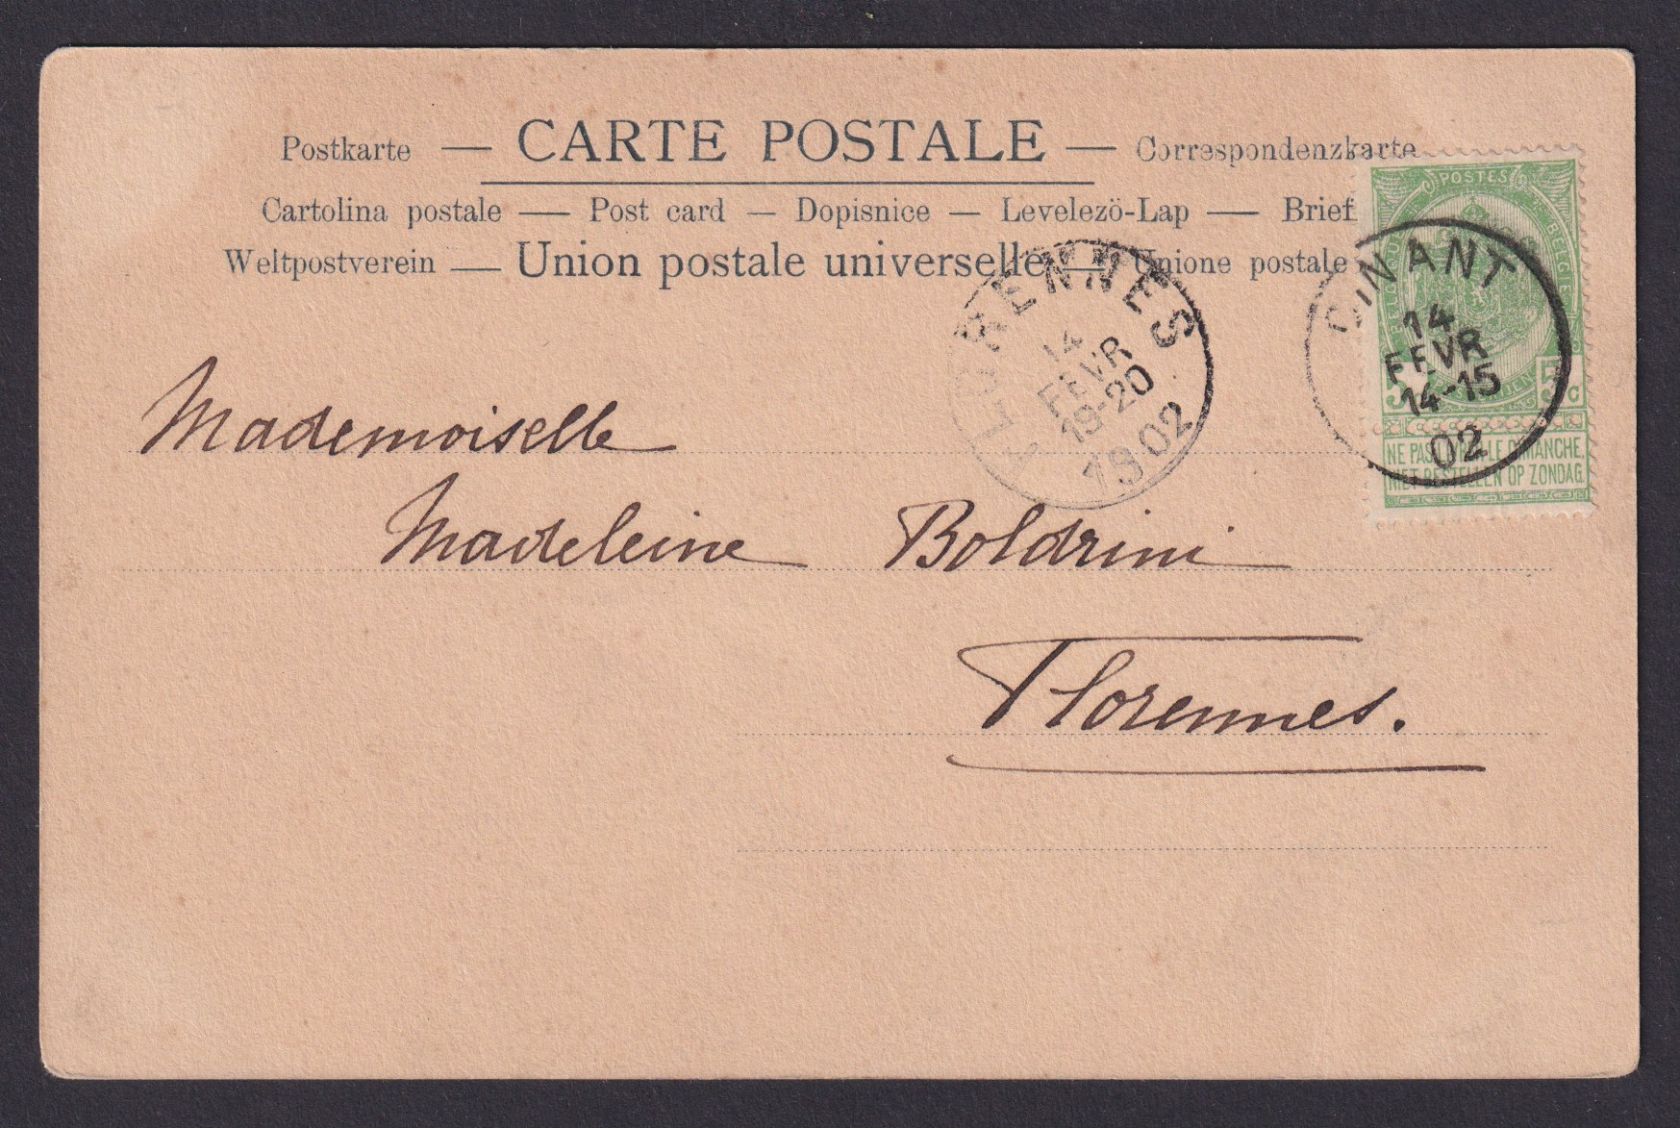 Postkarte — CARTE POSTALE — Correspondenzkarte
Cartolina postale — Post card — Dopisnice — Levelezö-Lap — Brief
Weltpostverein — Union postale universelle — Unione postale
POSTES
BELGIQUE
BELGIË
5 5c
NE PAS LIVRER LE DIMANCHE.
NIET BESTELLEN OP ZONDAG.
DINANT
14
FEVR
14-15
02
FLORENNES
14
FEVR
19-20
1902
Mademoiselle
Madeleine Boldrini
Florennes.